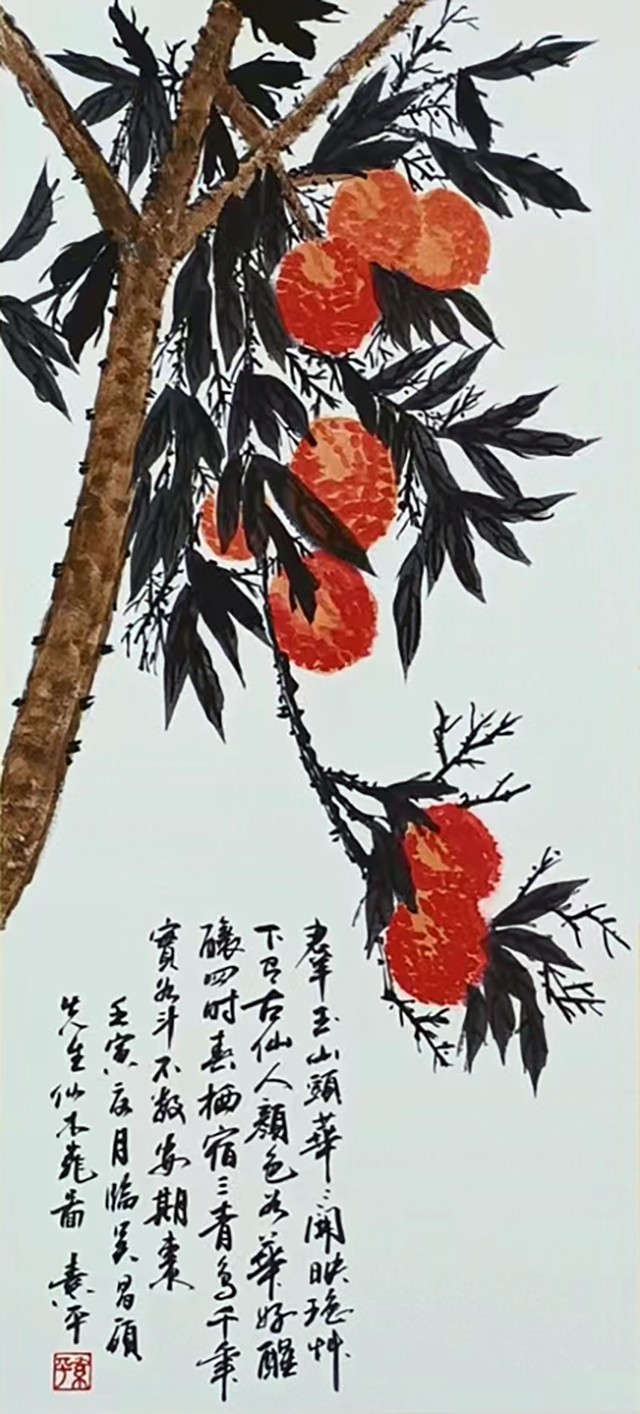 羣玉山頭華〻開映瑤艸
下有古仙人顏色如華好醖
釀四時春栖宿三青鳥千年
實如斗不數安期棗
壬寅月臨吴昌碩
先生仙木圖 袁平
袁平